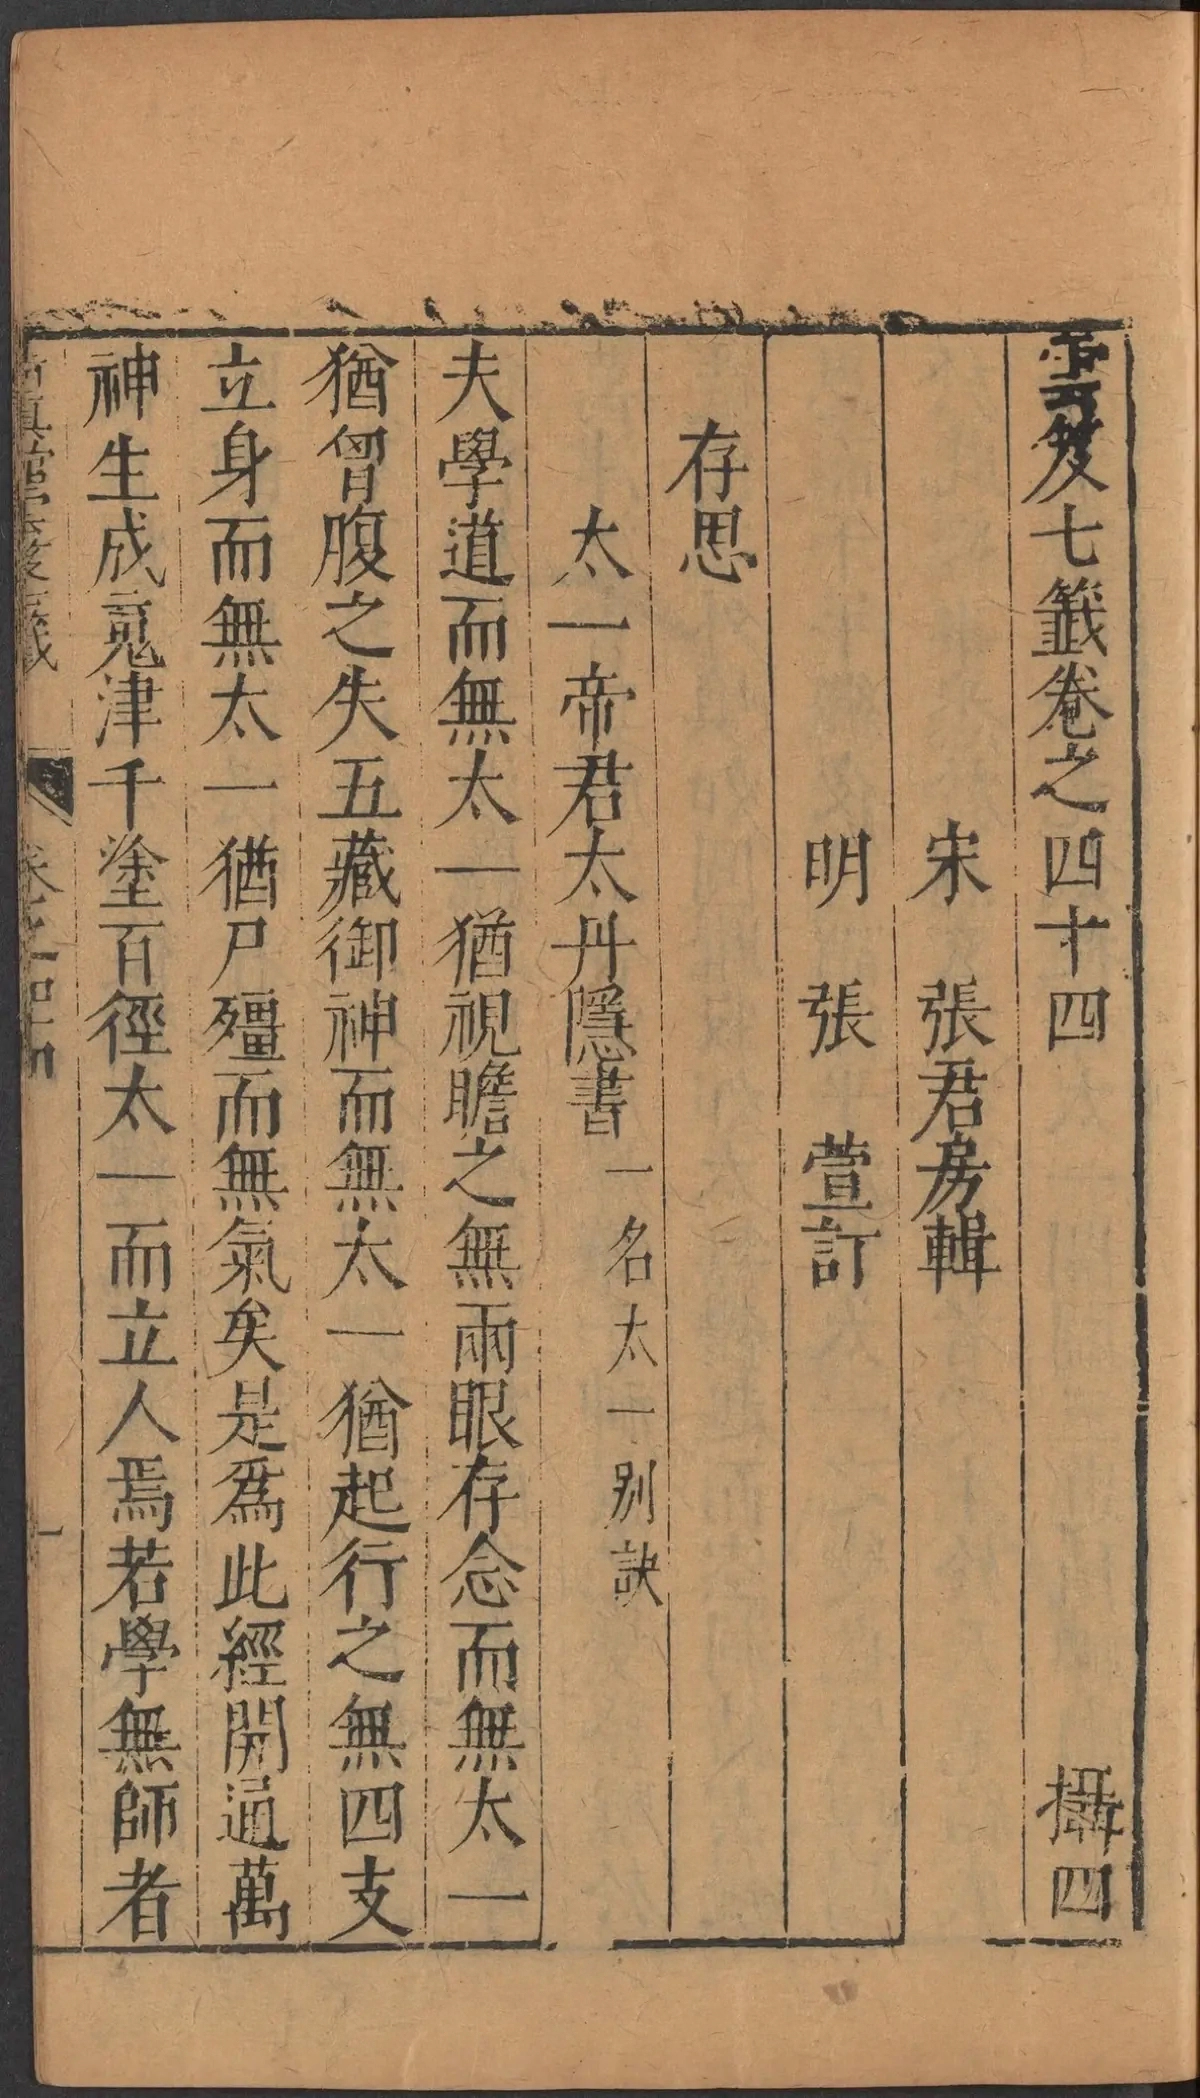 雲笈七籤卷之四十四 攝四
宋 張君房輯
明 張 萱訂
存思
太一帝君太丹隱書 一名太一別訣
夫學道而無太一猶視瞻之無兩眼存念而無太一
猶胷腹之失五藏御神而無太一猶起行之無四支
立身而無太一猶尸殭而無氣矣是爲此經開通萬
神生成䰟津千塗百徑太一而立人焉若學無師者
卷之四十四 一